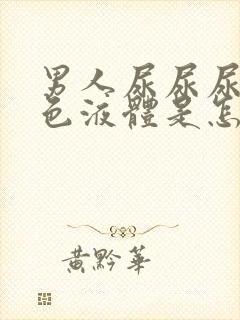 男人尿尿尿
色液體是怎
黃黔華